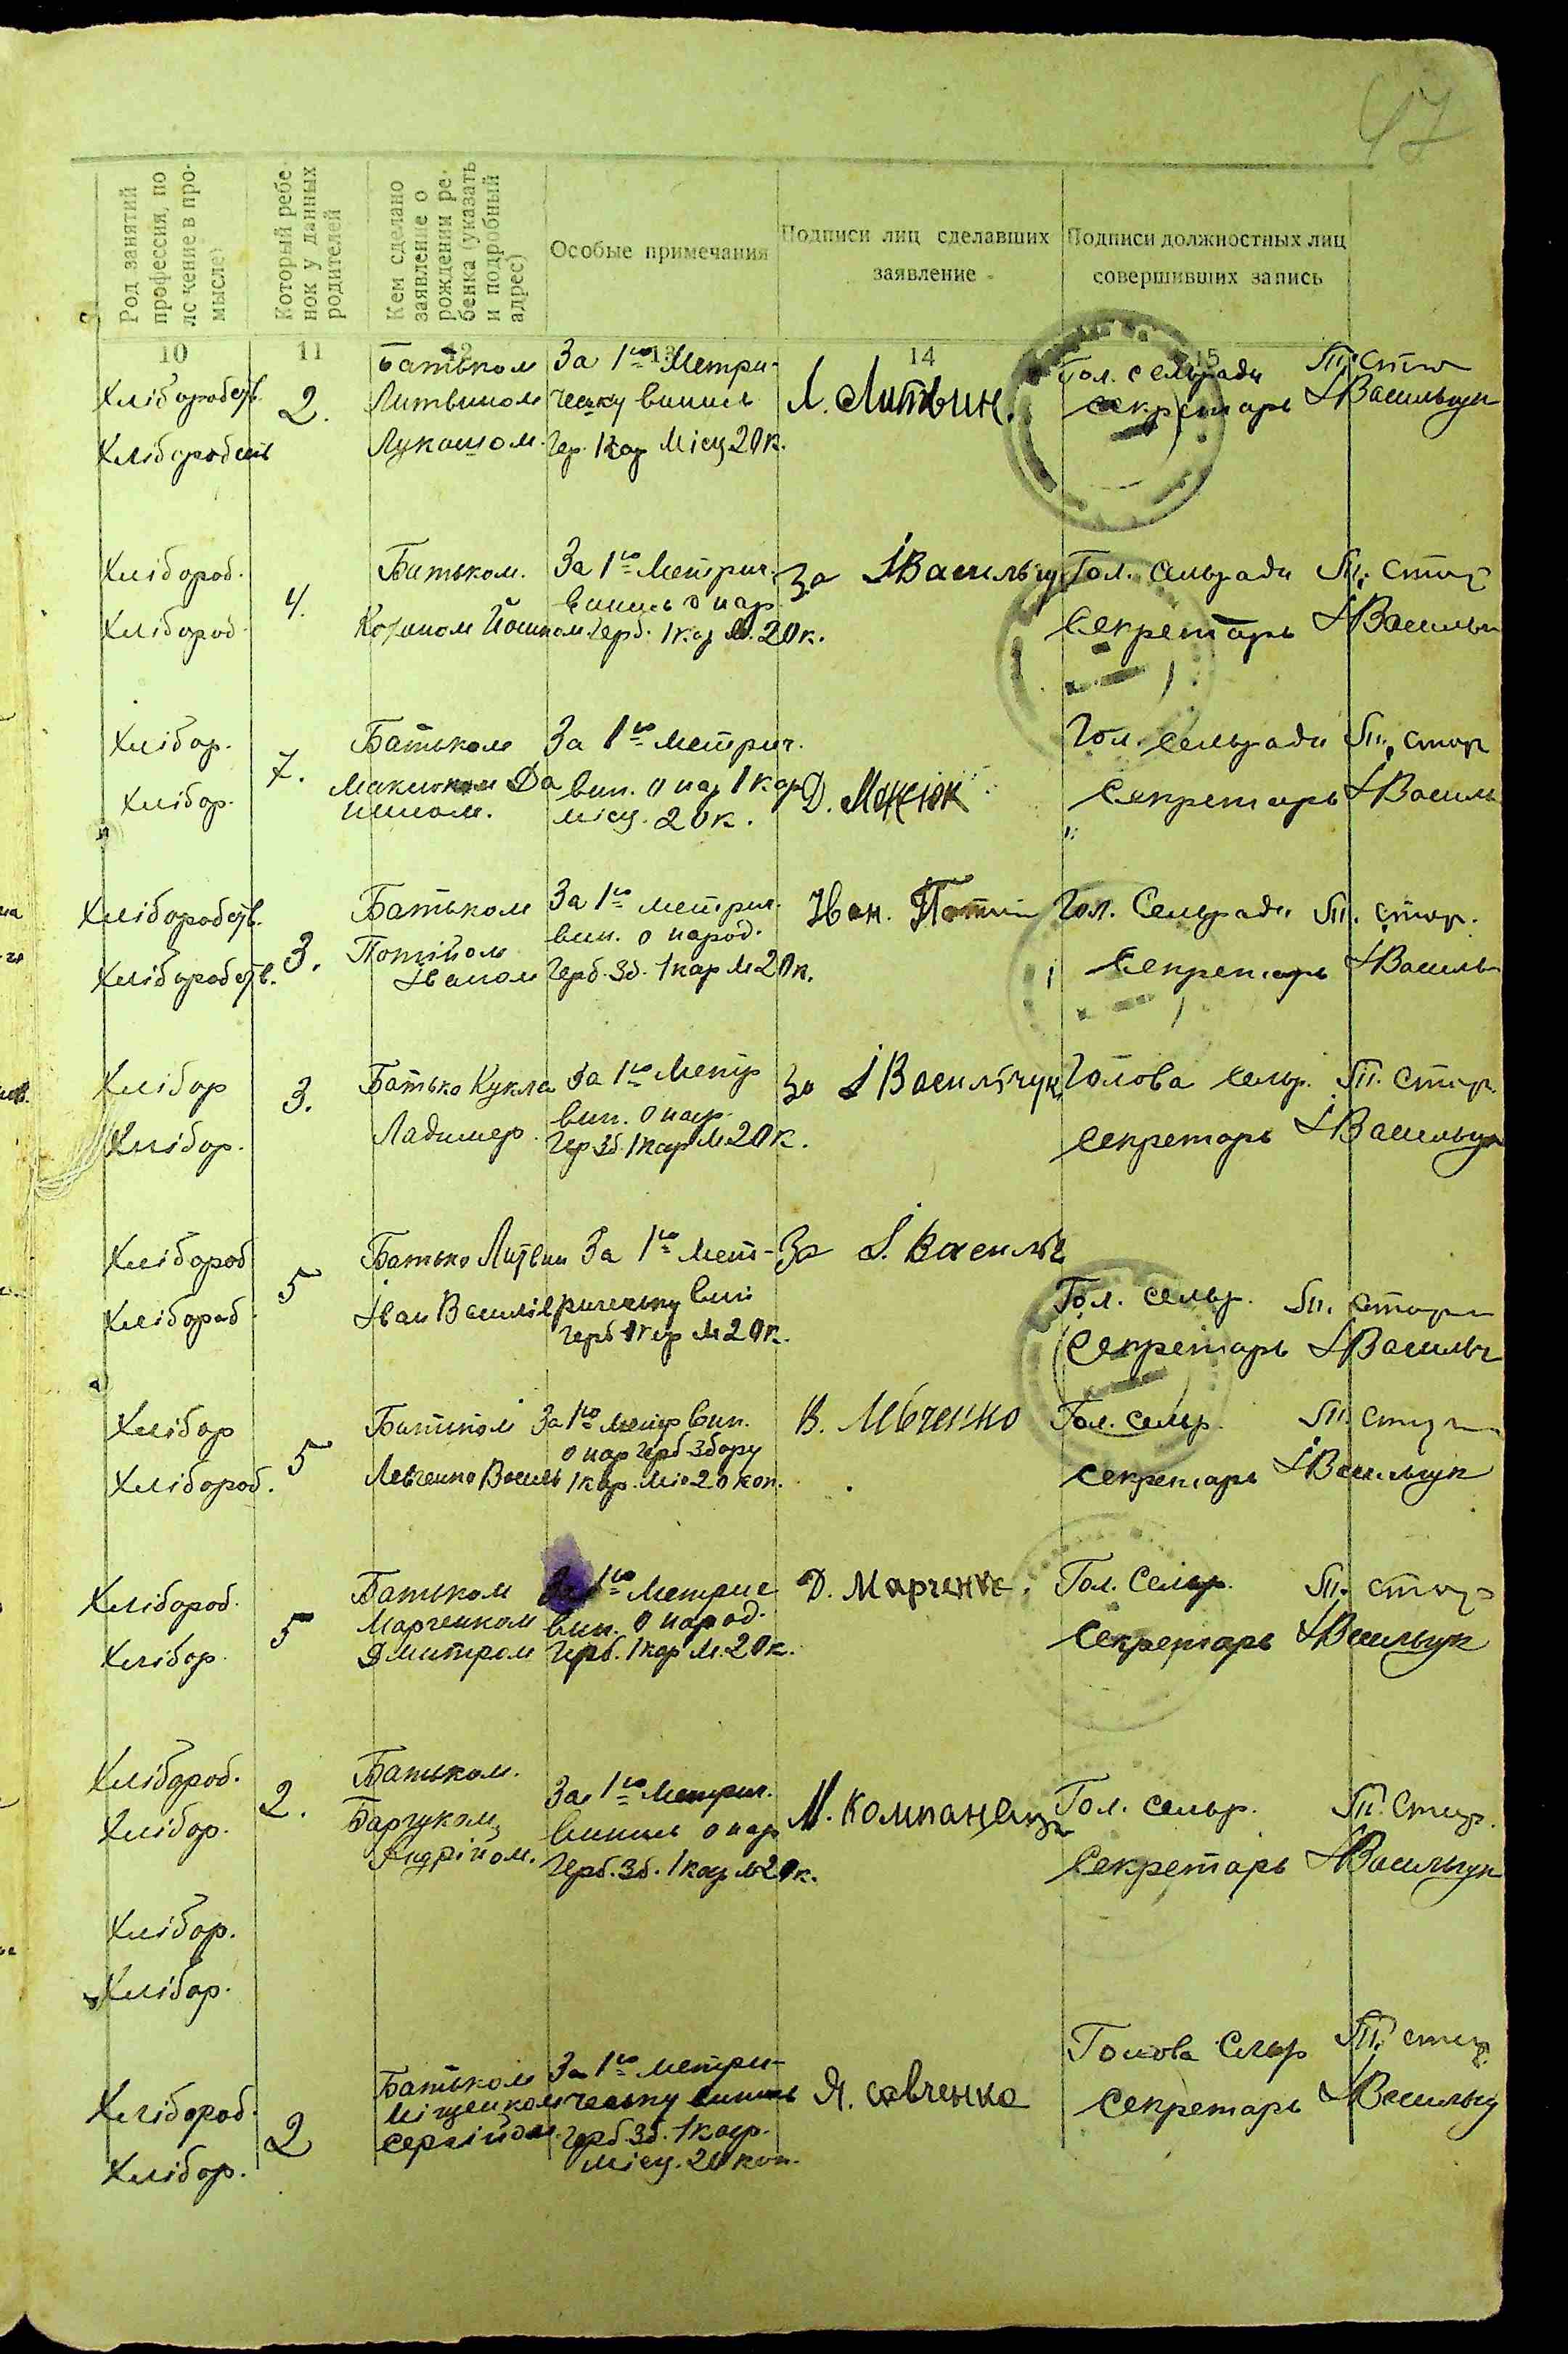 47
Род занятий
профессия, по
ложение в про-
мысле)
Который ребе-
нок у данных
родителей
Кем сделано
заявление о
рождении ре-
бенка (указать
и подробный
адрес)
Особые примечания
Подписи лиц сделавших
заявление
Подписи должностных лиц
совершивших запись
10 11 12 13 14 15
Хліборобств.
Хліборобств
2.
Батьком
Литвином
Лукашом.
За 1шо Метри-
ческу випись
Гер. 1 кар Місц 20 к.
Л. Литвин.
Гол. сельради
Секретарь ІВасильчук
Хлібороб.
Хлібороб.
4.
Батьком.
За 1шо Метрич.
випись о нар
Герб. 1 кар М. 20 к.
За ІВасильчу
Гол. сельради
Секретарь ІВасильч
Хлібор.
Хлібор.
7.
Батьком
За 1шо метрич.
вип. о нар 1 кар
місц. 20 к.
Гол. сельради
Секретарь ІВасиль
Хліборобств.
Хліборобств.
3.
Батьком
Потійом
Іваном
За 1шо метрич.
вип. о народ.
Герб. Зб. 1 кар М 20 к.
Іван. Потій
Гол. Сельради
Секретарь ІВасиль
Хлібор
Хлібор.
3.
Батько Кукла
Ладимер.
За 1шо Метр
вип. о нар.
Гер Зб. 1 кар М 20 к.
За ІВасильчук
Голова сельр.
Секретарь ІВасильчук
Хлібороб
Хлібороб
5
Батько Литвин
Іван Василів
За 1шо Мет-
рическу вип
Герб 1 кар М 20 к.
За І. Васильч
Гол. сельр.
Секретарь ІВасильч
Хлібор
Хлібороб.
5
Батьком
Левченко Василь
За 1шо метр вип.
о нар Герб Збору
1 кар. Міс 20 коп.
В. Левченко
Гол. сельр.
Секретарь ІВасильчук
Хлібороб.
Хлібор.
5
Батьком
Марченком
Дмитром
За 1шо Метрич
вип. о народ.
Герб. 1 кар М. 20 к.
Д. Марченко.
Гол. Сельр.
Секретарь ІВасильчук
Хлібороб.
Хлібор.
2.
Батьком.
Барчуком
Андрійом.
За 1шо Метрич.
випись о нар
Герб. Зб. 1 кар М 20 к.
М. Компанец
Гол. сельр.
Секретарь ІВасильчук
Хлібор.
Хлібор.
Хлібороб.
Хлібор.
2
Батьком
Міщенком
Сергійом.
За 1шо метри-
ческу випись
Герб. Зб. 1 кар.
Місц. 20 коп.
Я. Савченко
Голова Сльр
Секретарь ІВасильчу